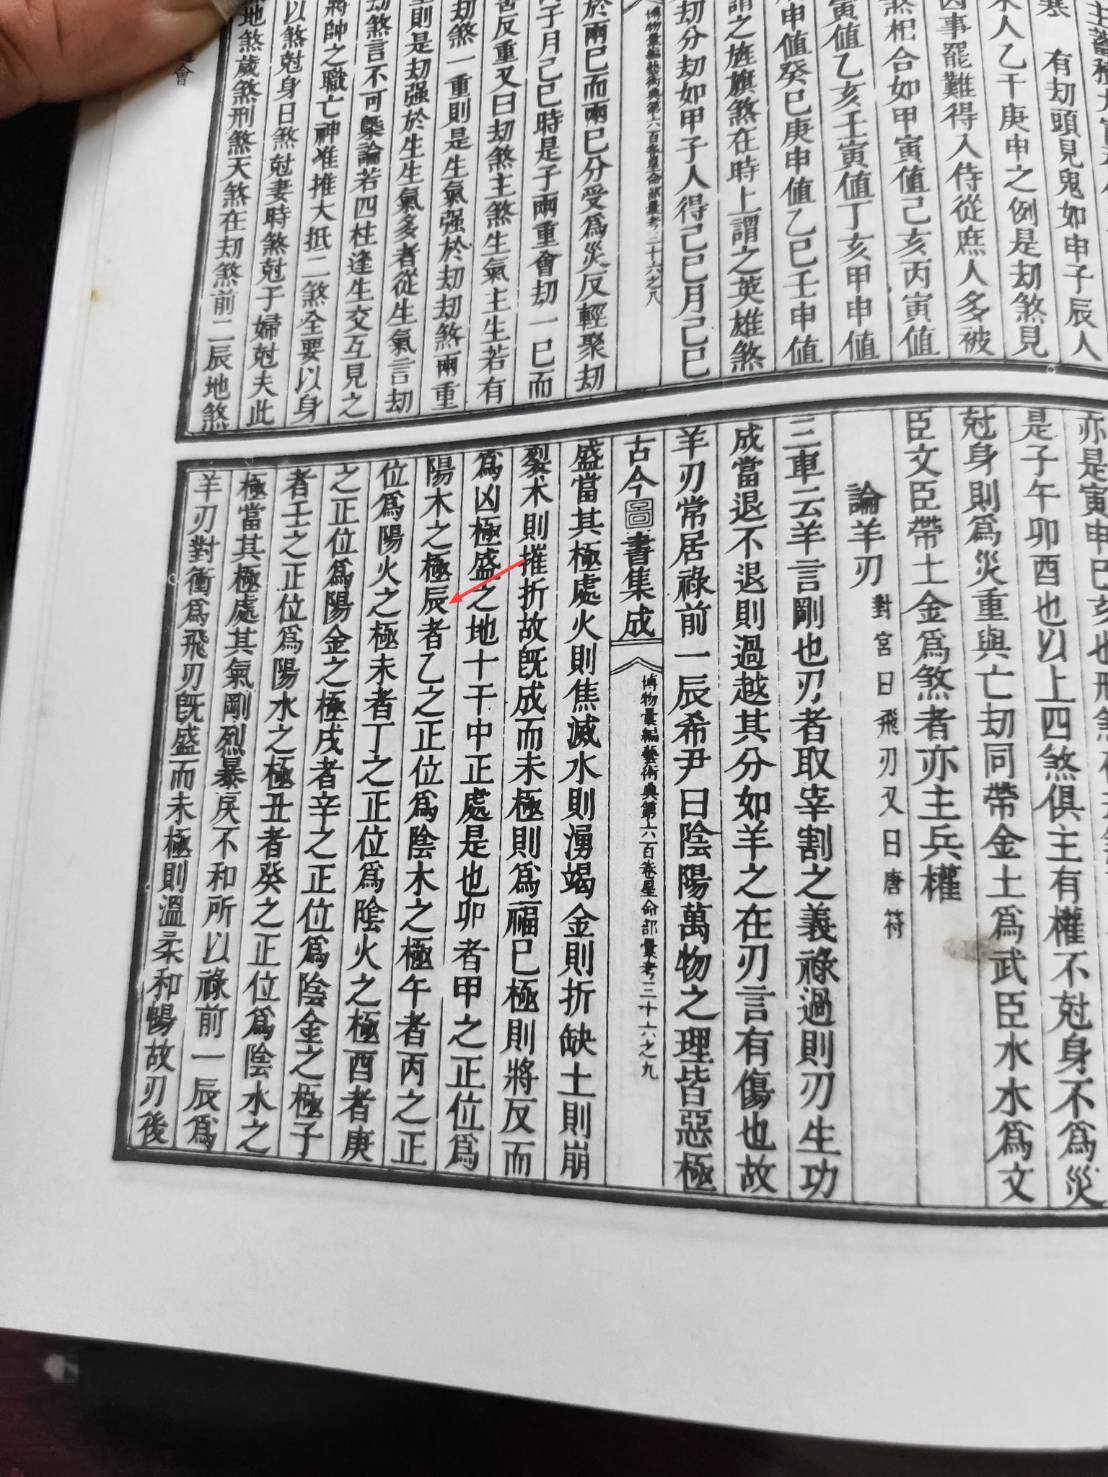 主蓄積
寒　有劫頭見鬼如申子辰人
未人乙干庚申之例是劫煞見
因事罷難得入侍從庶人多被
煞相合如甲寅值己亥丙寅值
寅值乙亥壬寅值丁亥甲申值
申值癸巳庚申值乙巳壬申值
謂之旌旗煞在時上謂之英雄煞
劫分劫如甲子人得己巳月己巳
博物彙編藝術典第六百卷星命部彙考三十六之八
於兩巳而兩巳分受爲災反輕聚劫
子月己巳時是子兩重會劫一巳而
反重又曰劫煞主煞生氣主生若有
劫煞一重則是生氣强於劫劫煞兩重
則是劫强於生生氣多者從生氣言劫
劫煞言不可槩論若四柱逢生交互見之
將帥之職亡神准推大抵二煞全要以身
以煞尅身日煞尅妻時煞尅子婦尅夫此
地煞歲煞刑煞天煞在劫煞前二辰地煞
會
亦是寅申巳亥也
是子午卯酉也以上四煞俱主有權不尅身不爲災
尅身則爲災重與亡劫同帶金土爲武臣水木爲文
臣文臣帶土金爲煞者亦主兵權
論羊刃對宮曰飛刃又曰唐符
三車云羊言剛也刃者取宰割之義祿過則刃生功
成當退不退則過越其分如羊之在刃言有傷也故
羊刃常居祿前一辰希尹曰陰陽萬物之理皆惡極
古今圖書集成　博物彙編藝術典第六百卷星命部彙考三十六之九
盛當其極處火則焦滅水則湧竭金則折缺土則崩
裂木則摧折故旣成而未極則爲福已極則將反而
爲凶極盛之地十干中正處是也卯者甲之正位爲
陽木之極辰者乙之正位爲陰木之極午者丙之正
位爲陽火之極未者丁之正位爲陰火之極酉者庚
之正位爲陽金之極戌者辛之正位爲陰金之極子
者壬之正位爲陽水之極丑者癸之正位爲陰水之
極當其極處其氣剛烈暴戾不和所以祿前一辰爲
羊刃對衝爲飛刃旣盛而未極則溫柔和暢故刃後